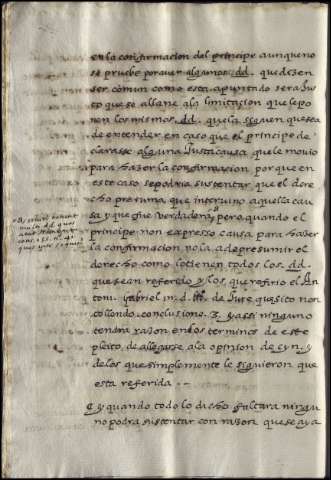 en la confirmacion del principe aunque no
se pruebe porque algunos .dd. que dizen
ser comun como esta apuntado sera jus
to que se allane a la limitacion que le po
nen los mismos .dd. que la siguen que sea
de entender en caso que el principe de
clarasse alguna justa causa que le movio
para hazer la confirmacion porque en
este caso se podria sustentar que el dere
cho presuma que intervino aquella cau
sa y que fue verdadera, pero quando el
principe no expresso causa para hazer
la confirmacion no la a de presumir el
derecho como lo tienen todos los .dd.
que sean referido y los que refirio el An
toni. Gabriel in. d. tit. de Jure quæsito non
tollendo. conclusione. 3. y assi ninguno
tendra razon en los terminos de este
pleito, de allegarse a la opinion de cyn. y
de los que simplemente le siguieron que
esta referida .--
y quando todo lo dicho faltara ningu
no podra sustentar con razon que se aya